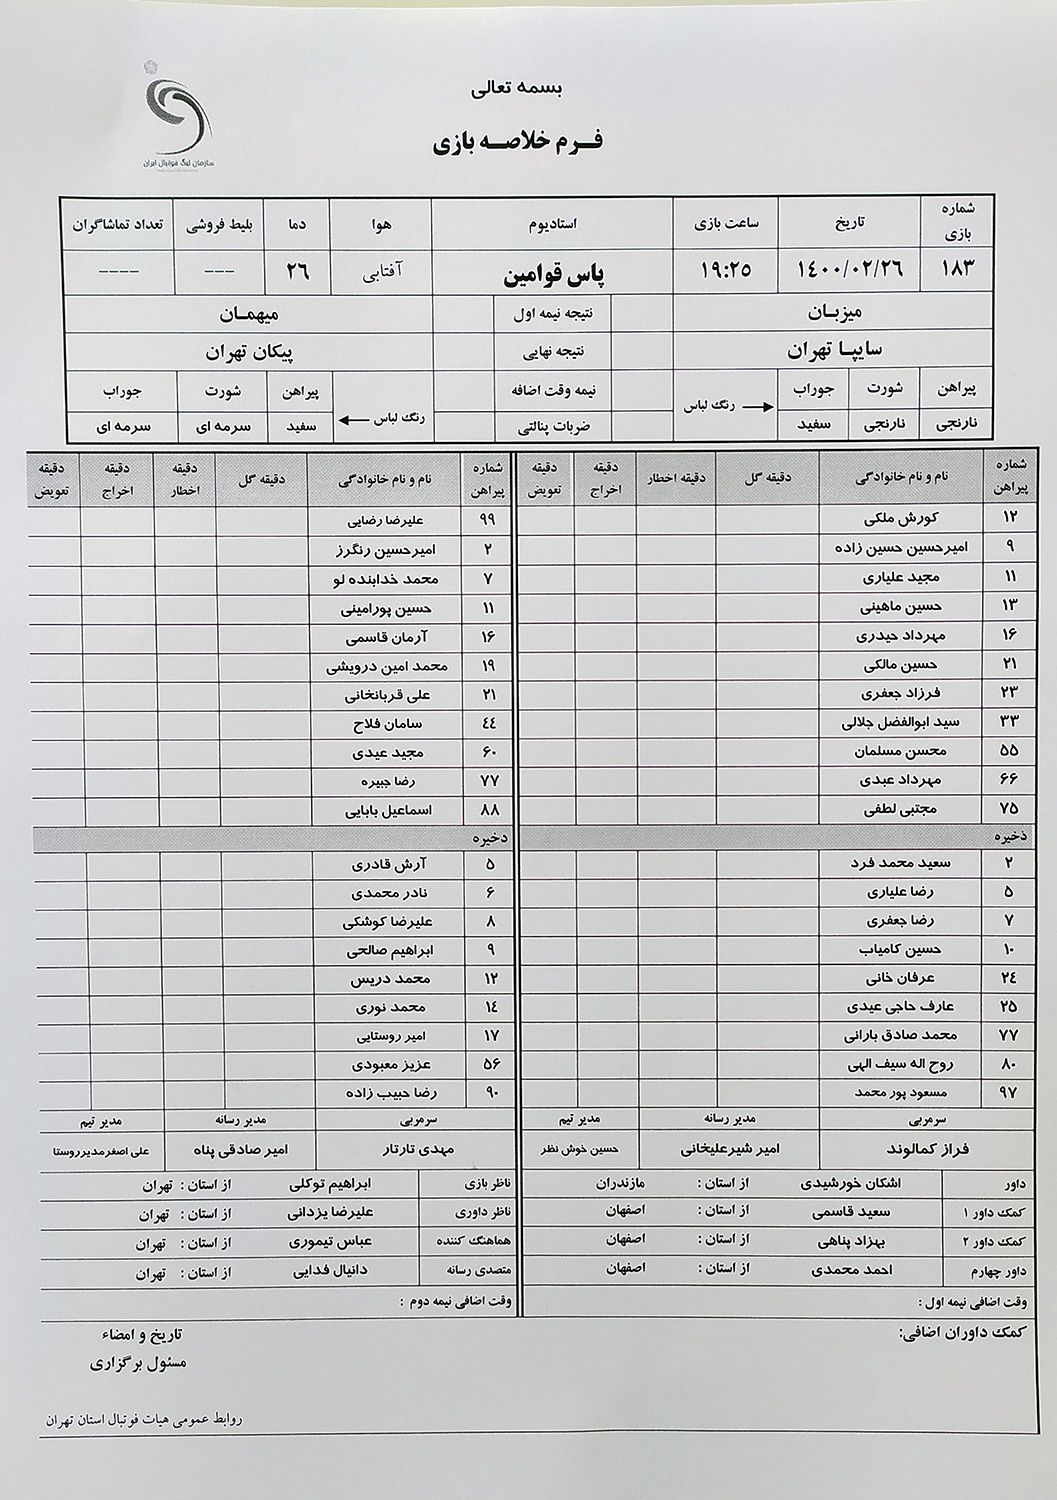 بسمه تعالی
فرم خلاصه بازی
سازمان لیگ فوتبال ایران
شماره بازی تاریخ ساعت بازی استادیوم هوا دما بلیط فروشی تعداد تماشاگران
۱۸۳ ۱٤۰۰/۰۲/۲۶ ۱۹:۲۵ پاس قوامین آفتابی ۲۶ --- ----
میزبان نتیجه نیمه اول میهمان
سایپا تهران نتیجه نهایی پیکان تهران
پیراهن شورت جوراب رنگ لباس نیمه وقت اضافه رنگ لباس پیراهن شورت جوراب
نارنجی نارنجی سفید ضربات پنالتی سفید سرمه ای سرمه ای
شماره پیراهن نام و نام خانوادگی دقیقه گل دقیقه اخطار دقیقه اخراج دقیقه تعویض شماره پیراهن نام و نام خانوادگی دقیقه گل دقیقه اخطار دقیقه اخراج دقیقه تعویض
۱۲ کورش ملکی ۹۹ علیرضا رضایی
۹ امیرحسین حسین زاده ۲ امیرحسین رنگرز
۱۱ مجید علیاری ۷ محمد خدابنده لو
۱۳ حسین ماهینی ۱۱ حسین پورامینی
۱۶ مهرداد حیدری ۱۶ آرمان قاسمی
۲۱ حسین مالکی ۱۹ محمد امین درویشی
۲۳ فرزاد جعفری ۲۱ علی قربانخانی
۳۳ سید ابوالفضل جلالی ٤٤ سامان فلاح
۵۵ محسن مسلمان ۶۰ مجید عیدی
۶۶ مهرداد عبدی ۷۷ رضا جبیره
۷۵ مجتبی لطفی ۸۸ اسماعیل بابایی
ذخیره ذخیره
۲ سعید محمد فرد ۵ آرش قادری
۵ رضا علیاری ۶ نادر محمدی
۷ رضا جعفری ۸ علیرضا کوشکی
۱۰ حسین کامیاب ۹ ابراهیم صالحی
۲٤ عرفان خانی ۱۲ محمد دریس
۲۵ عارف حاجی عیدی ۱٤ محمد نوری
۷۷ محمد صادق بارانی ۱۷ امیر روستایی
۸۰ روح اله سیف الهی ۵۶ عزیز معبودی
۹۷ مسعود پور محمد ۹۰ رضا حبیب زاده
سرمربی مدیر رسانه مدیر تیم سرمربی مدیر رسانه مدیر تیم
فراز کمالوند امیر شیرعلیخانی حسین خوش نظر مهدی تارتار امیر صادقی پناه علی اصغر مدیرروستا
داور اشکان خورشیدی از استان : مازندران ناظر بازی ابراهیم توکلی از استان : تهران
کمک داور ۱ سعید قاسمی از استان : اصفهان ناظر داوری علیرضا یزدانی از استان : تهران
کمک داور ۲ بهزاد پناهی از استان : اصفهان هماهنگ کننده عباس تیموری از استان : تهران
داور چهارم احمد محمدی از استان : اصفهان متصدی رسانه دانیال فدایی از استان : تهران
وقت اضافی نیمه اول : وقت اضافی نیمه دوم :
کمک داوران اضافی: تاریخ و امضاء
مسئول برگزاری
روابط عمومی هیات فوتبال استان تهران